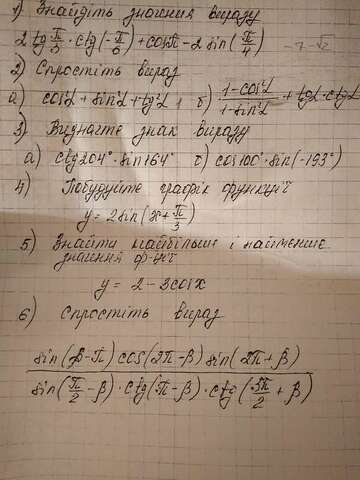 1) Знайдіть значення виразу
2 tg π/3 · ctg(-π/6) + cosπ - 2 sin(π/4) -7-√2
2) Спростіть вираз
а) cos²α + sin²α + tg²α, б) (1-cos²α)/(1-sin²α) + tgα · ctgα
3) Визначте знак виразу
а) ctg204° · sin164° б) cos100° · sin(-193°)
4) Побудуйте графік функції
y = 2sin(x + π/3)
5) Знайти найбільше і найменше
значення ф-ції
y = 2 - 3cosx
6) Спростіть вираз
sin(β-π) cos(2π-β) sin(2π+β)
sin(π/2 - β) · ctg(π-β) · ctg(3π/2 + β)